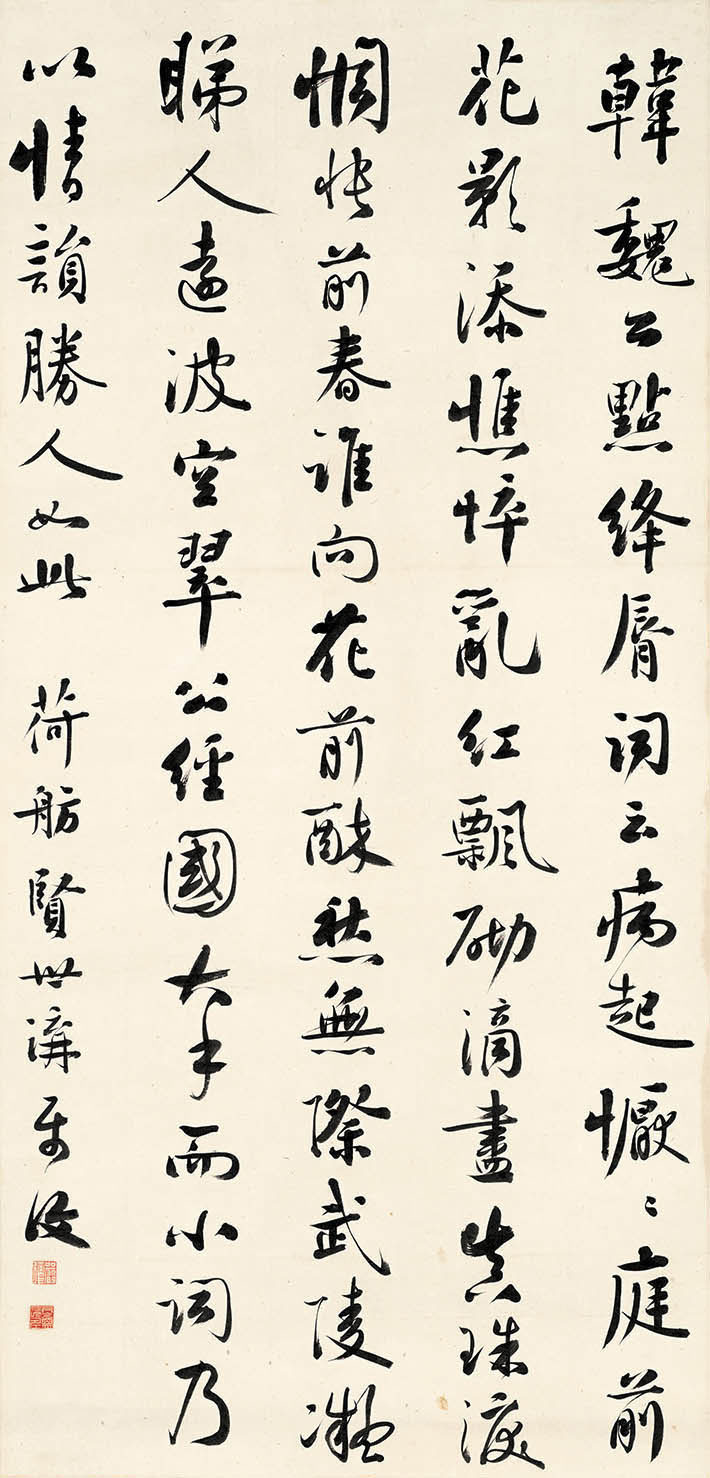 韓魏公點絳脣詞云病起懨〻庭前
花影添憔悴亂紅飄砌滴盡真珠淚
惆悵前春誰向花前醉愁無際武陵凝
睇人遠波空翠公經國大手而小詞乃
以情韻勝人如此 荷舫賢世講屬 俊